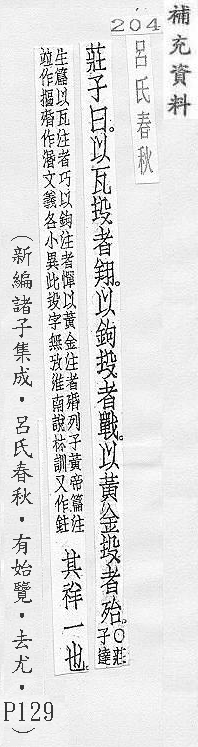 補充資料
204
呂氏春秋
莊子曰。以瓦投者翔。以鉤投者戰。以黃金投者殆。○莊子達
生篇以瓦注者巧以鉤注者憚以黃金注者殙列子黃帝篇注
竝作摳殙作涽文義各小異此投字無攷淮南說林訓又作鉒
其祥一也。
（新編諸子集成・呂氏春秋・有始覽・去尤・
P129